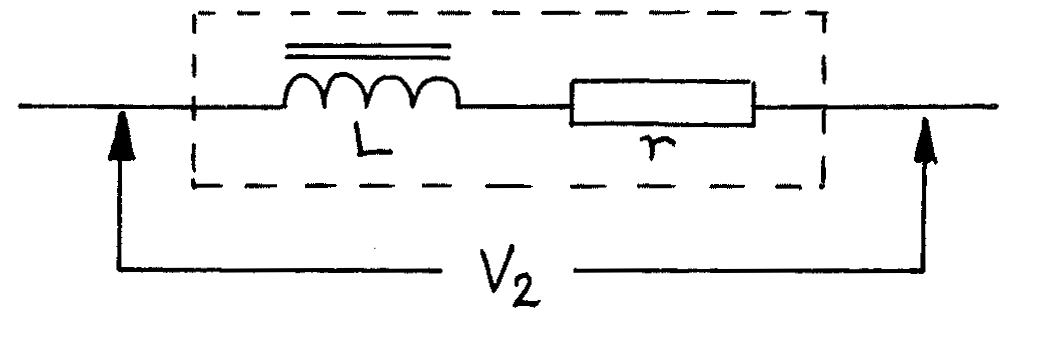 L
r
V₂